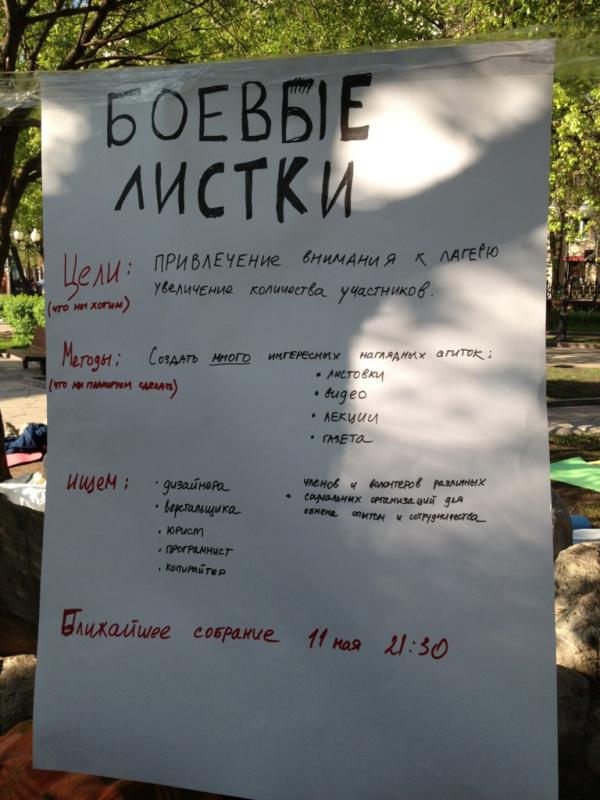 БОЕВЫЕ
ЛИСТКИ
Цели: ПРИВЛЕЧЕНИЕ ВНИМАНИЯ К ЛАГЕРЮ
(что мы хотим) УВЕЛИЧЕНИЕ КОЛИЧЕСТВА УЧАСТНИКОВ.
Методы: Создать много интересных наглядных агиток:
(что мы планируем сделать)
• листовки
• видео
• лекции
• газета
ищем:
• дизайнера
• верстальщика
• юрист
• програмнист
• копирайтер
• членов и волонтеров различных
социальных организаций для
обмена опытом и сотрудничества
Ближайшее собрание 11 мая 21:30